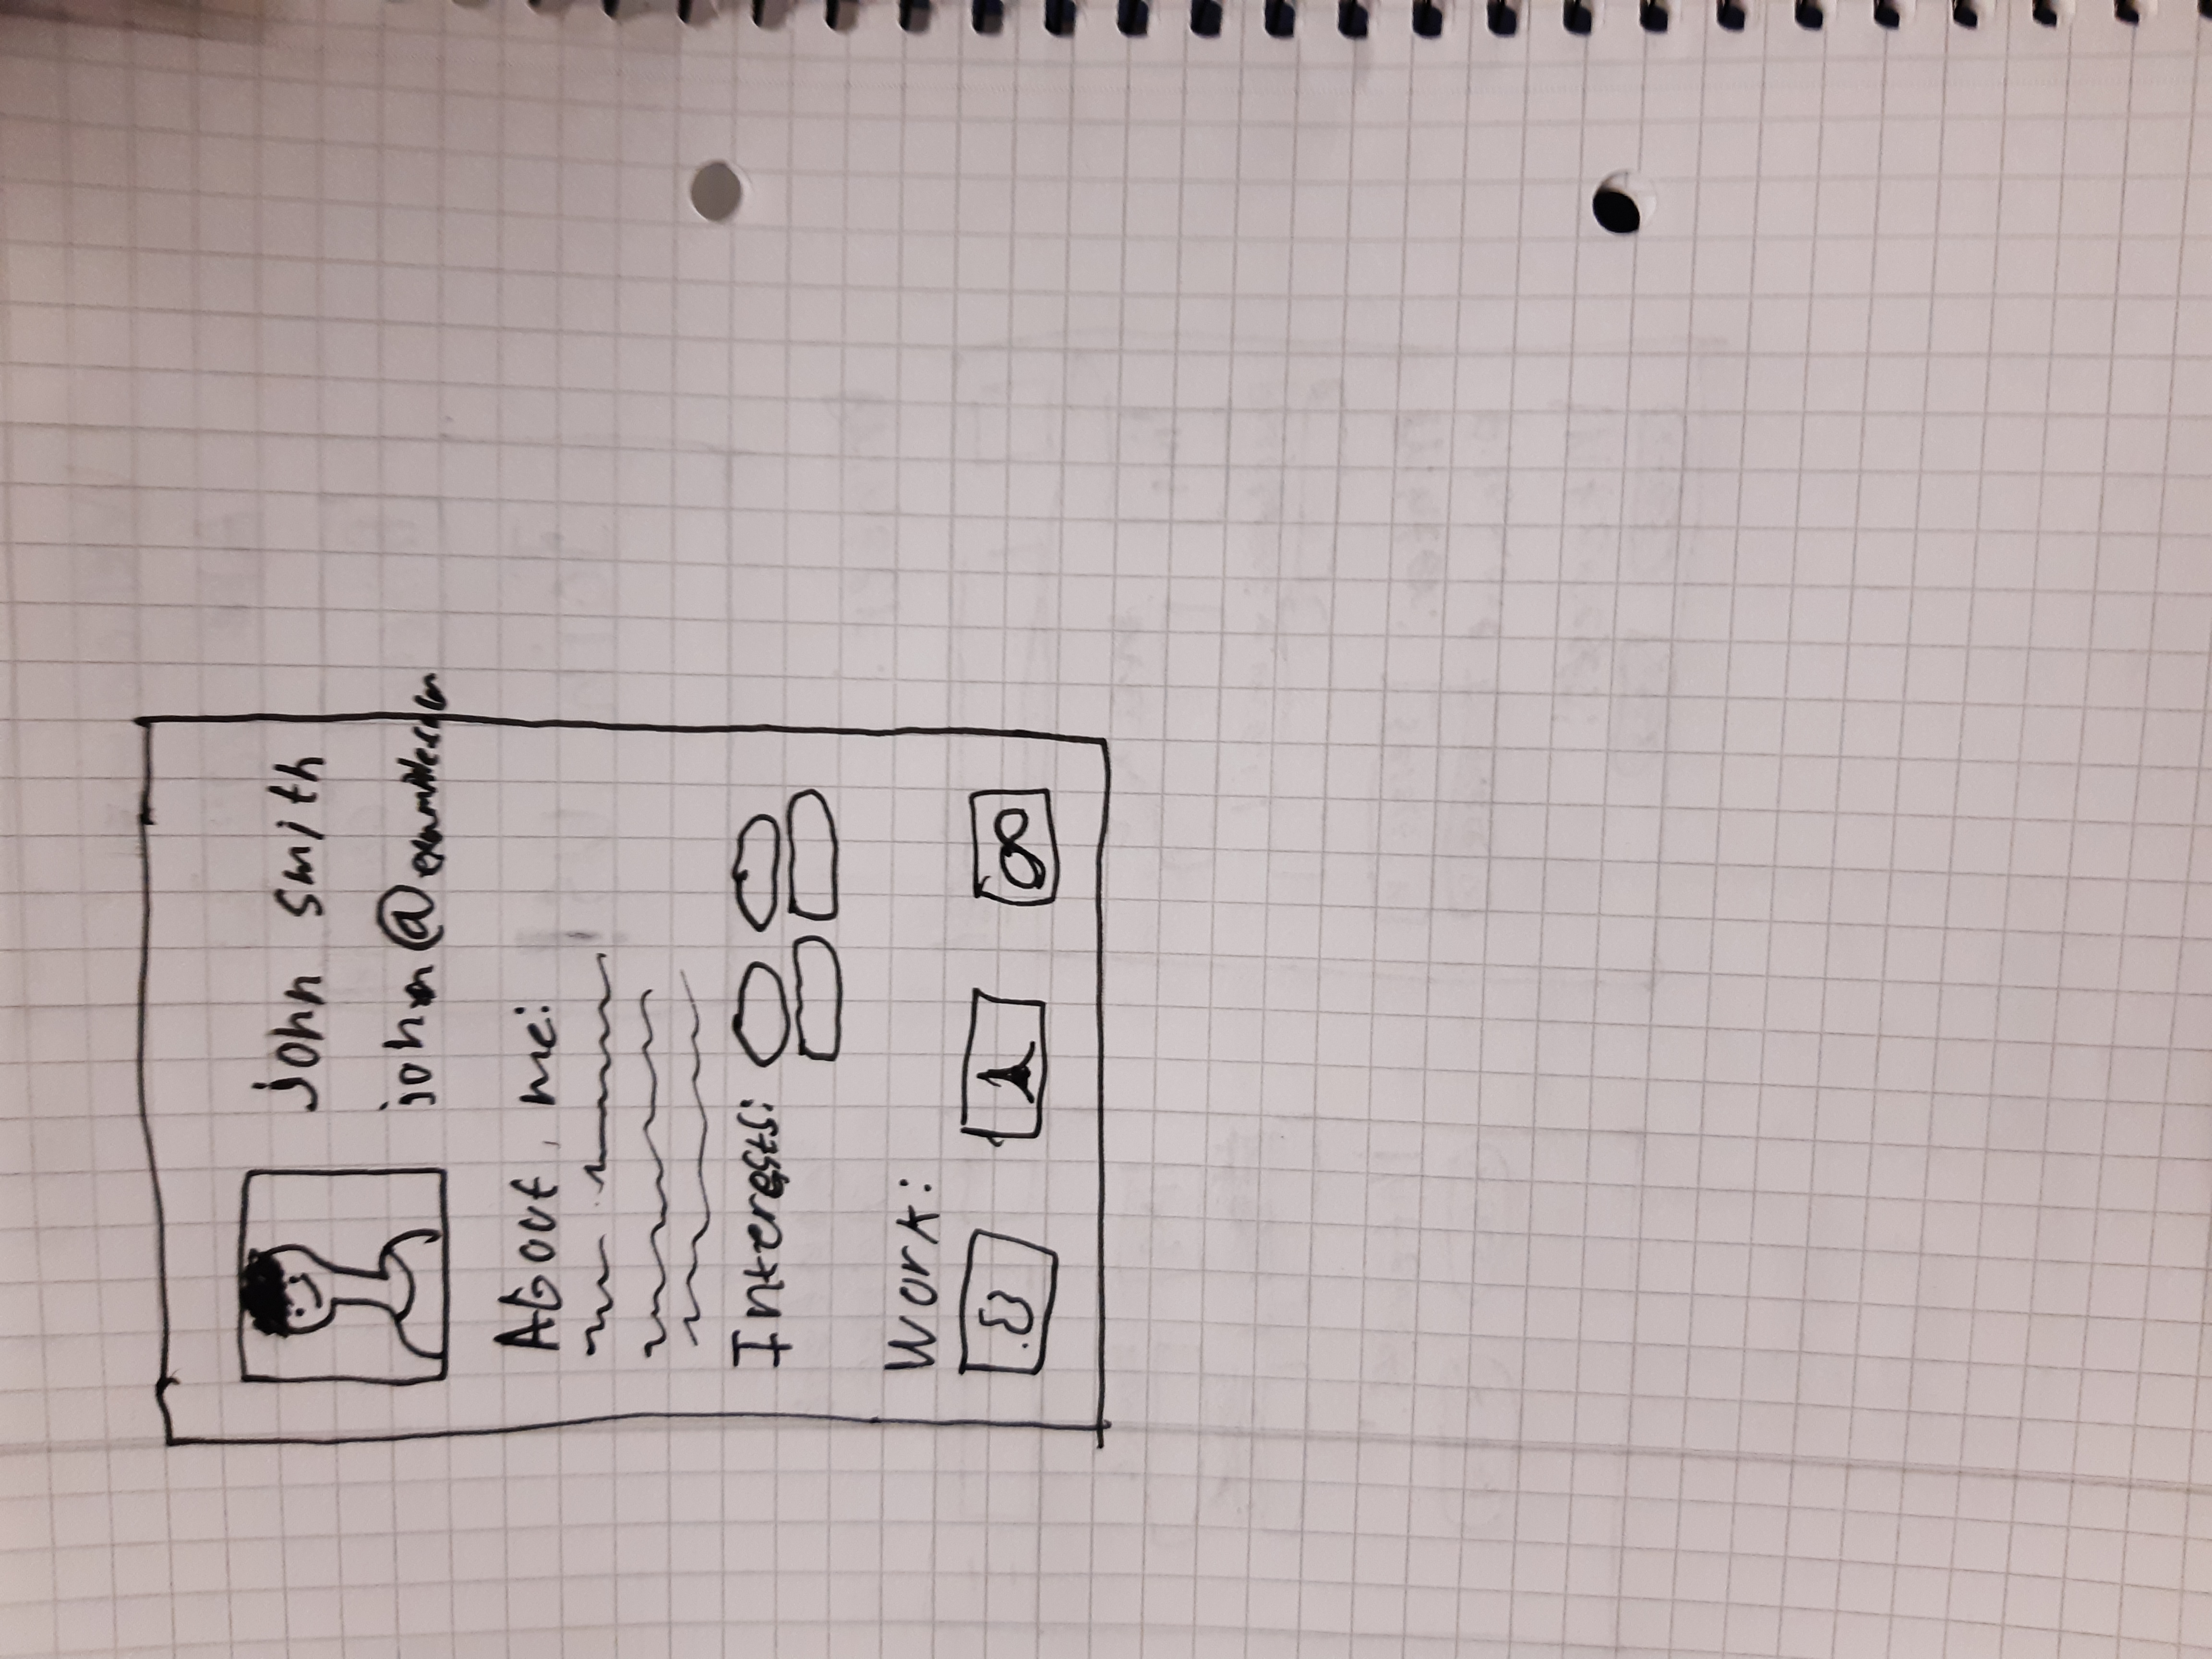 john smith
john@example.com
About me:
Interests:
Work: